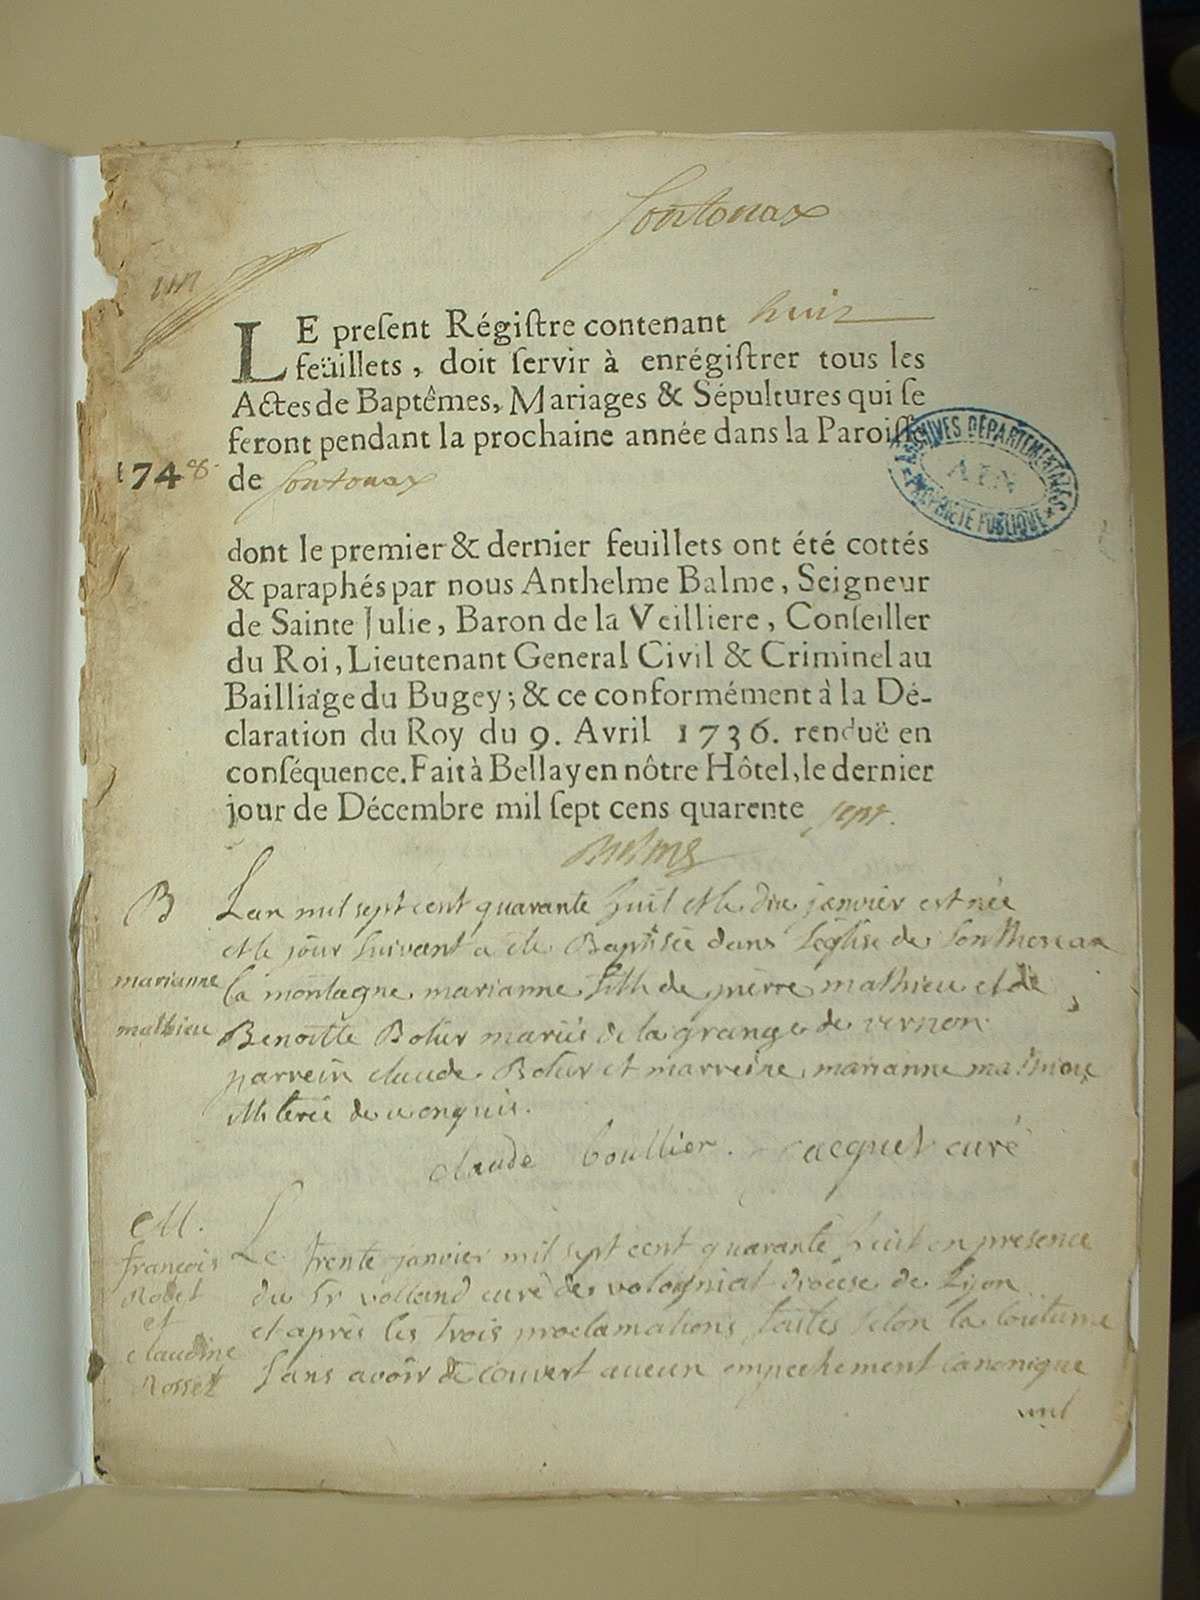 Sontonax
un
LE preſent Régiſtre contenant huit
feüillets, doit ſervir à enrégiſtrer tous les
Actes de Baptêmes, Mariages & Sépultures qui ſe
feront pendant la prochaine année dans la Paroiſſe
1748 de Sontonax
ARCHIVES DÉPARTEMENTALES
AIN
PROPRIÉTÉ PUBLIQUE
dont le premier & dernier feuillets ont été cottés
& paraphés par nous Anthelme Balme, Seigneur
de Sainte Julie, Baron de la Veilliere, Conſeiller
du Roi, Lieutenant General Civil & Criminel au
Bailliage du Bugey; & ce conformément à la Dé-
claration du Roy du 9. Avril 1736. renduë en
conſéquence. Fait à Bellay en nôtre Hôtel, le dernier
jour de Décembre mil ſept cens quarente sept.
Balme
B
marianne
mathieu
Lan mil sept cent quarante huit et le dix janvier est née
et le jour suivant a été Baptisée dans l'église de
la montagne marianne fille de pierre mathieu et de
Benoitte mariés de la grange de vernon
parrein claude et marreine marianne mathieu
claude boullier. jacquet curé
M.
françois
Robet
et
claudine
Rosset
Le trente janvier mil sept cent quarante huit en presence
du Sr volland curé de diocese de Lyon
et après les trois proclamations faites selon la coutume
sans avoir découvert aucun empechement canonique